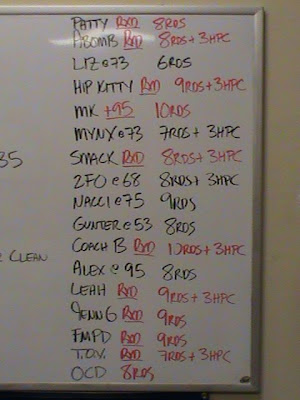 PATTY RXD 8RDS
ABOMB RXD 8RDS+3HPC
LIZ@73 6RDS
HIP KITTY RXD 9RDS+3HPC
MK +95 10RDS
MYNX@73 7RDS+3HPC
SMACK RXD 8RDS+3HPC
35
2FO@68 8RDS+3HPC
NACCI@75 9RDS
GUNTER@53 8RDS
COACH B RXD 10RDS+3HPC
CLEAN
ALEX@95 8RDS
LEAH RXD 9RDS+3HPC
JENN G RXD 9RDS
FMPD RXD 9RDS
T.O.V. RXD 7RDS+3HPC
OCD 8RDS